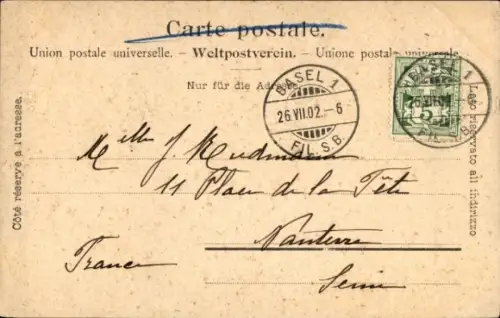 Carte postale.
Union postale universelle. – Weltpostverein. – Unione postale universale.
Nur für die Adresse
BASEL 1
26.VII.02.–6
FIL. S.B.
BASEL 1
FIL. S.B.
5
Côté réservé à l'adresse.
Lato riservato all'indirizzo
Melle J.
11 Place de la Fête
Nanterre
France
Seine